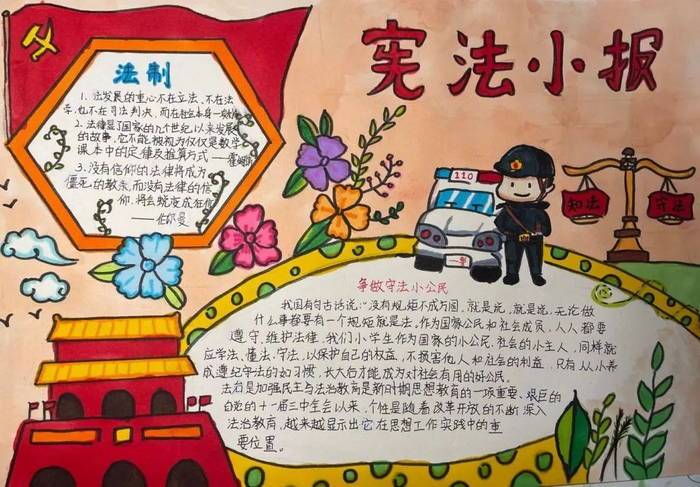 宪法小报
法制
1、法发展的重心不在立法、不在法
学,也不在司法判决,而在社会本身
2、法律是
的故事,它不能被视为仅仅是数学
课本中的定律及推算方式
3、没有信仰的法律将成为
僵死的教条,而没有法律的信
仰,将会蜕变成狂信
——伯尔曼
110
知法
守法
争做守法小公民
我国有句古话说:没有规矩不成方圆,就是说,就是说,无论做
什么事都要有一个规矩就是法。作为国家公民和社会成员,人人都要
遵守、维护法律。我们小学生作为国家的小公民、社会的小主人,同样就
应学法、懂法、守法,以保护自己的权益,不损害他人和社会的利益。只有从小养
成遵纪守法的好习惯,长大后才能成为对社会有用的好公民。
法治是加强民主与法治教育是新时期思想教育的一项重要、艰巨的
十一届三中全会以来,个性是随着改革开放的不断深入
法治教育,越来越显示出它在思想工作实践中的重
要位置。